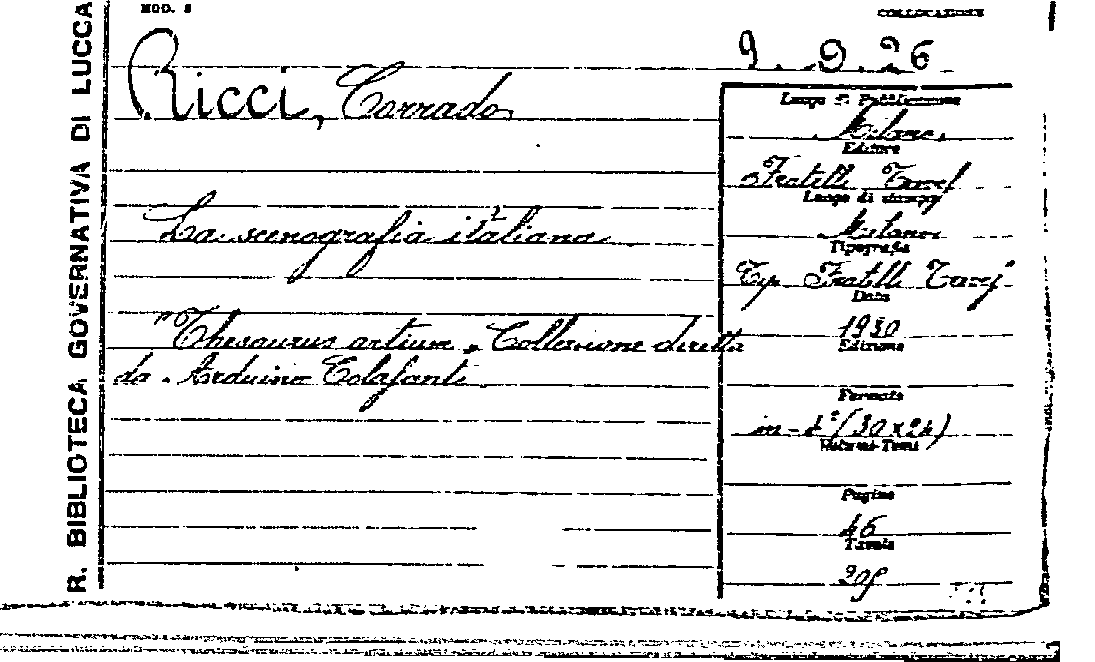 MOD. 8
COLLOCAZIONE
R. BIBLIOTECA GOVERNATIVA DI LUCCA
9. 9. 26
Ricci, Corrado
Luogo di Pubblicazione
Milano
Editore
Fratelli Treves
Luogo di stampa
La scenografia italiana
Milano
Tipografia
Tip. Fratelli Treves
Data
"Thesaurus artium" Collezione diretta
1930
Edizione
da Arduino Colasanti
Formato
in-4° (30x24)
Volumi-Tomi
Pagine
46
Tavole